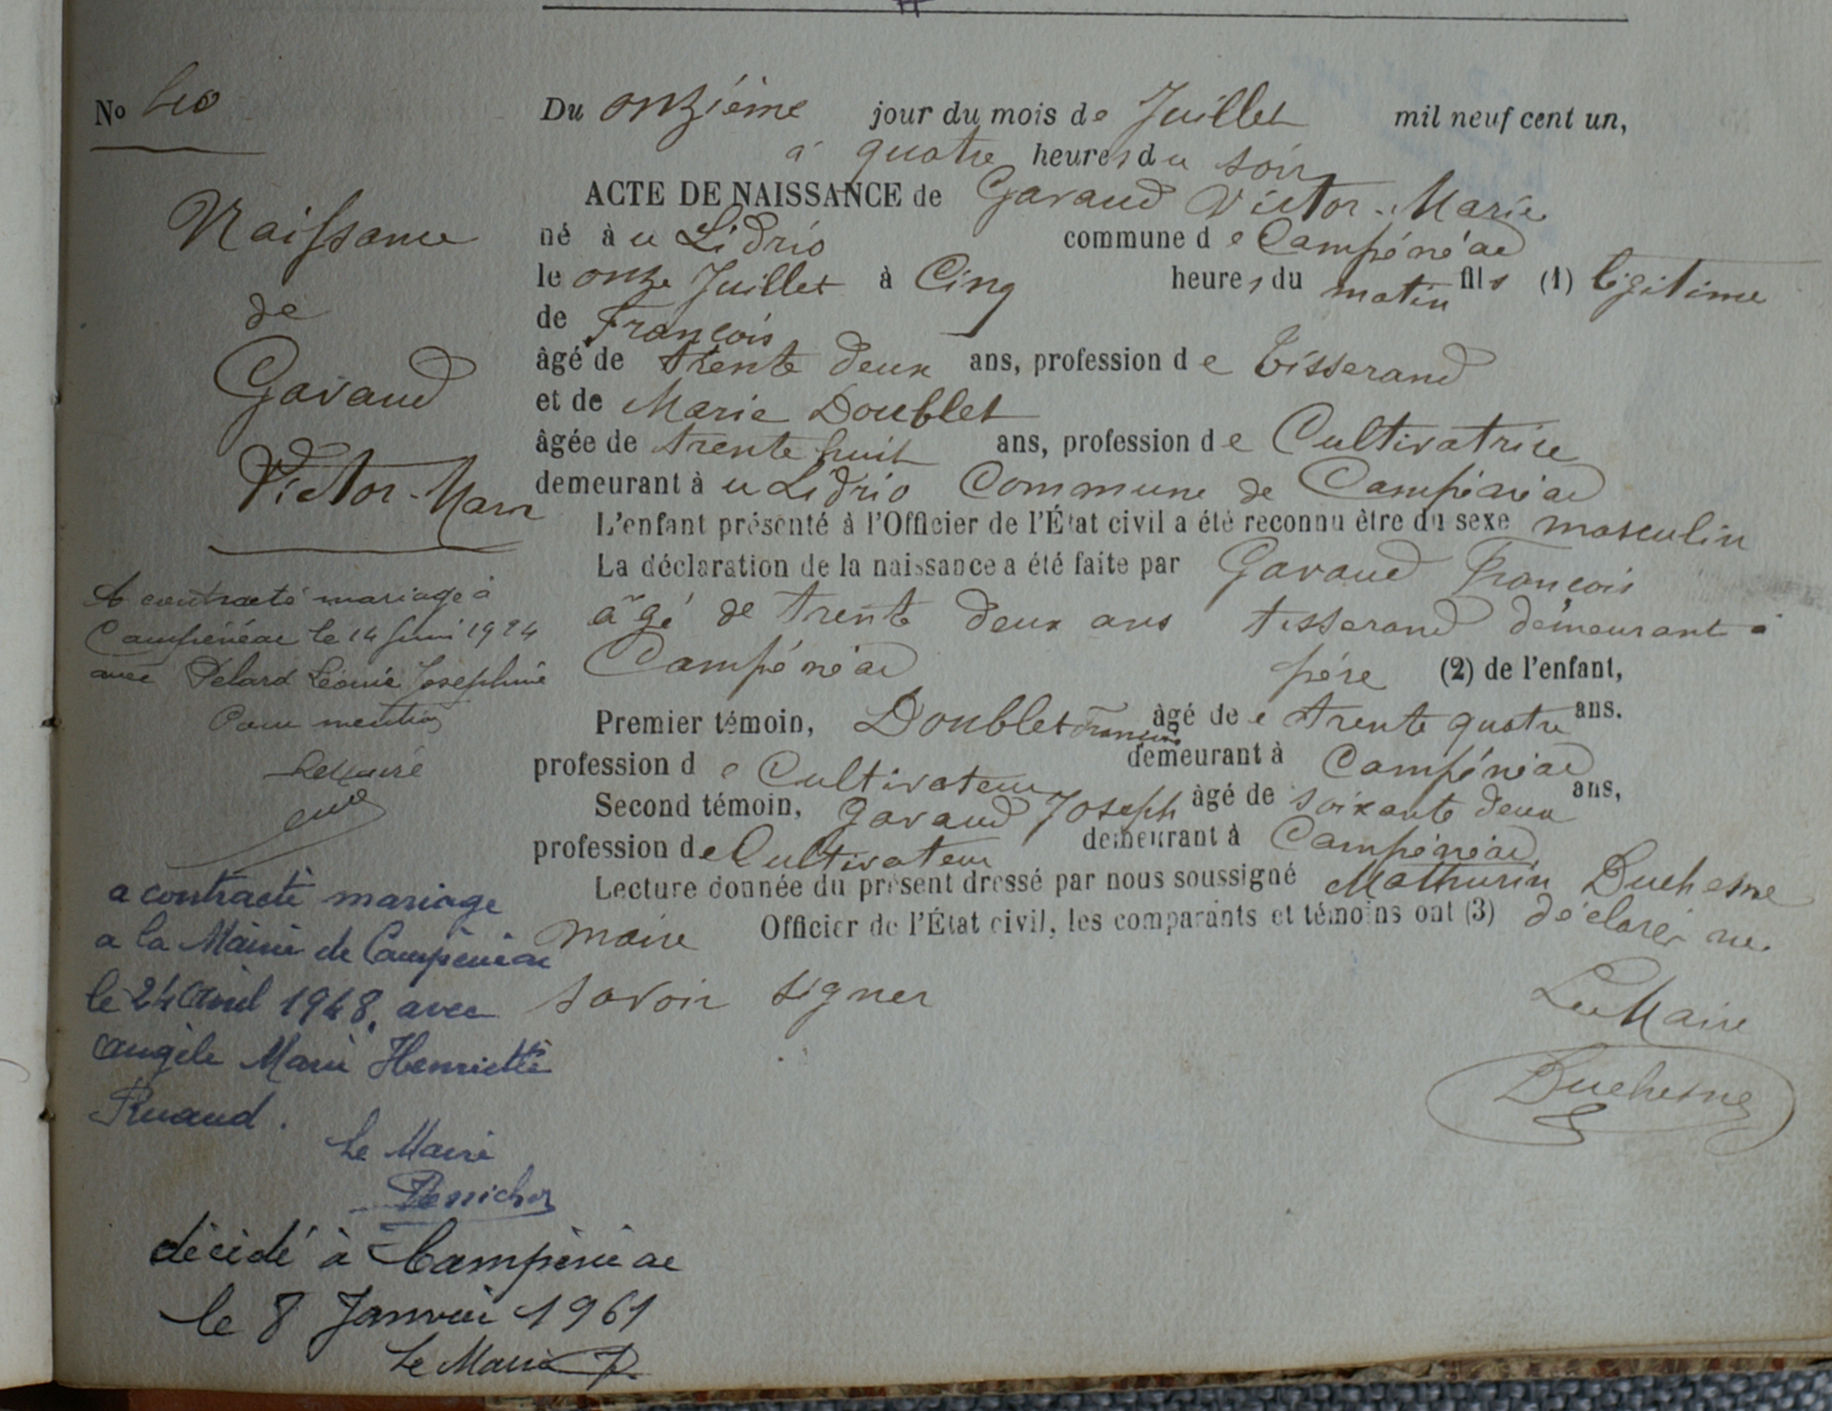 No 40
Naissance
de
Gavaud
Victor-Marie
A contracté mariage à
Campénéac le 14 Juin 1924
avec Pelard Léonie Josephine
Pour mention
Le Maire
a contracté mariage
a la Mairie de Campénéac
le 24 Avril 1948, avec
Angèle Marie Henriette
Ruaud.
Le Maire
décédé à Campénéac
le 8 Janvier 1961
Le Maire
Du onzième jour du mois de Juillet mil neuf cent un,
à quatre heures du soir
ACTE DE NAISSANCE de Gavaud Victor-Marie
né à u Lidrio commune de Campénéac
le onze Juillet à Cinq heures du matin fils (1) légitime
de François
âgé de trente deux ans, profession de tisserand
et de Marie Doublet
âgée de trente huit ans, profession de Cultivatrice
demeurant à u Lidrio Commune de Campénéac
L'enfant présenté à l'Officier de l'État civil a été reconnu être du sexe masculin
La déclaration de la naissance a été faite par Gavaud François
âgé de trente deux ans tisserand demeurant à
Campénéac père (2) de l'enfant,
Premier témoin, Doublet François âgé de e trente quatre ans.
profession de Cultivateur demeurant à Campénéac
Second témoin, Gavaud Joseph âgé de soixante deux ans,
profession de Cultivateur demeurant à Campénéac
Lecture donnée du présent dressé par nous soussigné Mathurin Duchesne
maire Officier de l'État civil, les comparants et témoins ont (3) déclaré ne
savoir signer
Le Maire
Duchesne